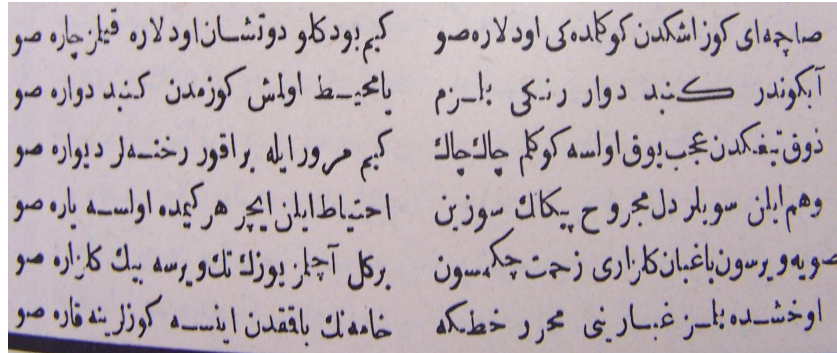 صاچمه ای کوز اشکدن کوکلمده کی اودلاره صو کیم بو دکلو دوتشان اودلاره قیلمز چاره صو
آبکوندر کنبد دوار رنکی بلمزم یا محیط اولمش کوزمدن کنبد دواره صو
ذوق تیغکدن عجب یوق اولسه کوکلم چاك چاك کیم مرور ایله براقور رخنه لر دیواره صو
وهم ایلن سویلر دل مجروح پیکانك سوزین احتیاط ایلن ایچر هر کیمده اولسه یاره صو
صویه ویرسون باغبان کلزاری زحمت چکمسون بر کل آچلمز یوزك تك ویرسه بیك کلزاره صو
اوخشده بلمز غبارینی محرر خطکه خامه تك باققدن اینسه کوزلرینه قاره صو